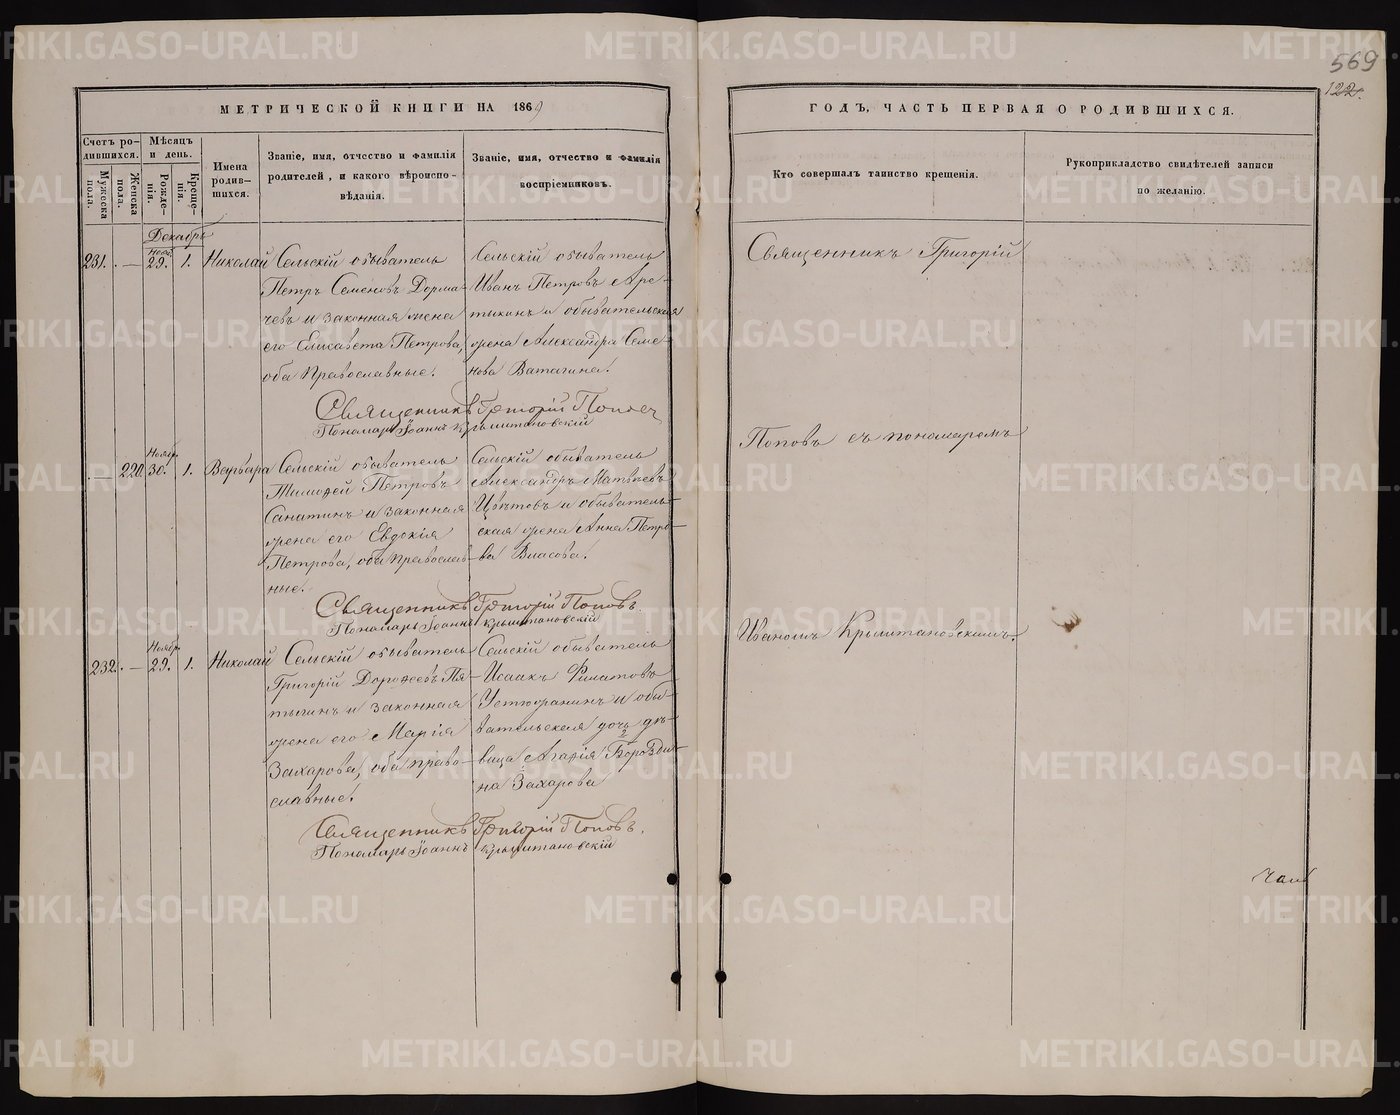 569
122.
МЕТРИЧЕСКОЙ КНИГИ НА 1869
ГОДЪ, ЧАСТЬ ПЕРВАЯ О РОДИВШИХСЯ.
Счетъ родившихся.
Мужеска пола.
Женска пола.
Мѣсяцъ и день.
Рожденія.
Крещенія.
Имена родившихся.
Званіе, имя, отчество и фамилія
родителей, и какого вѣроиспо-
вѣданія.
Званіе, имя, отчество и фамилія
воспріемниковъ.
Кто совершалъ таинство крещенія.
Рукоприкладство свидѣтелей записи
по желанію.
Декабрь
231. — 29. 1. Николай
Сельскій обыватель
Петръ Семеновъ Дорма-
чевъ и законная жена
его Елисавета Петрова,
оба Православные.
Сельскій обыватель
Иванъ Петровъ
и обывательская
жена Александра Семе-
нова Ватагина.
Священникъ Григорій Поповъ
Пономарь Іоаннъ Крыштановскій
Ноябр.
— 220. 30. 1. Варвара
Сельскій обыватель
Тимофей Петровъ
и законная
жена его Евдокія
Петрова, оба Православ-
ные.
Сельскій обыватель
Александръ Матвѣевъ
Цвѣтовъ и обыватель-
ская жена Анна Петро-
ва Власова.
Священникъ Григорій Поповъ.
Пономарь Іоаннъ Крыштановскій
Ноябр.
232. — 29. 1. Николай
Сельскій обыватель
Григорій Дорофеевъ Пя-
тыгинъ и законная
жена его Марія
Захарова, оба право-
славные.
Сельскій обыватель
Исаакъ Филатовъ
Устюжанинъ и обы-
вательская дочь дѣ-
вица Агафія Бороздин-
на Захарова
Священникъ Григорій Поповъ.
Пономарь Іоаннъ Крыштановскій
Священникъ Григорій
Поповъ съ пономаремъ
Иваномъ Крыштановскимъ.
METRIKI.GASO-URAL.RU